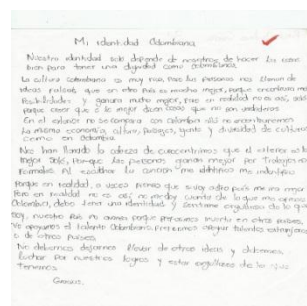 Mi identidad Colombiana
Nuestra identidad solo depende de nosotros de hacer las cosas
bien para tener una dignidad como colombianos.
La cultura Colombiana es muy rica, pero las personas nos llenan de
ideas falsas, que en otro País es mucho mejor, porque encontrara más
Posibilidades y ganara mucho mejor, pero en realidad no es así, solo
porque creer que o le mejor dicen cosas que no son verdaderas
En el exterior no se compara con Colombia allá no encontraremos
La misma economía, cultura, paisajes, gente y diversidad de cultura
como en Colombia.
Nos han llenado la cabeza de que el exterior es lo
mejor Solo, Porque las personas ganan mejor por Trabajos no
formales Al escuchar la canción me identifico me
Porque en realidad, a veces pienso que otro país me ira mejor
Pero en realidad no es así no me doy cuenta de lo que me ofrece
Colombia, debo tener una identidad y sentirme orgullosa de lo que
soy, nuestro País no avanza porque preferimos invertir en otros países.
No apoyamos el talento Colombiano, preferimos apoyar talentos extranjeros
o de otros países.
No deberiamos dejarnos llevar de otras ideas y debemos
luchar por nuestros logros y estar orgullosos de lo que
Tenemos.
Gracias.